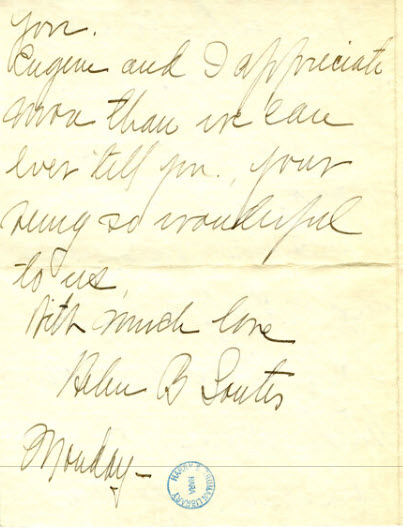 you.
Eugene and I appreciate
more than we can
ever tell you., your
being so wonderful
to us,
With much love
Helen B Souter
Monday—
HARRY S. TRUMAN LIBRARY
NARA